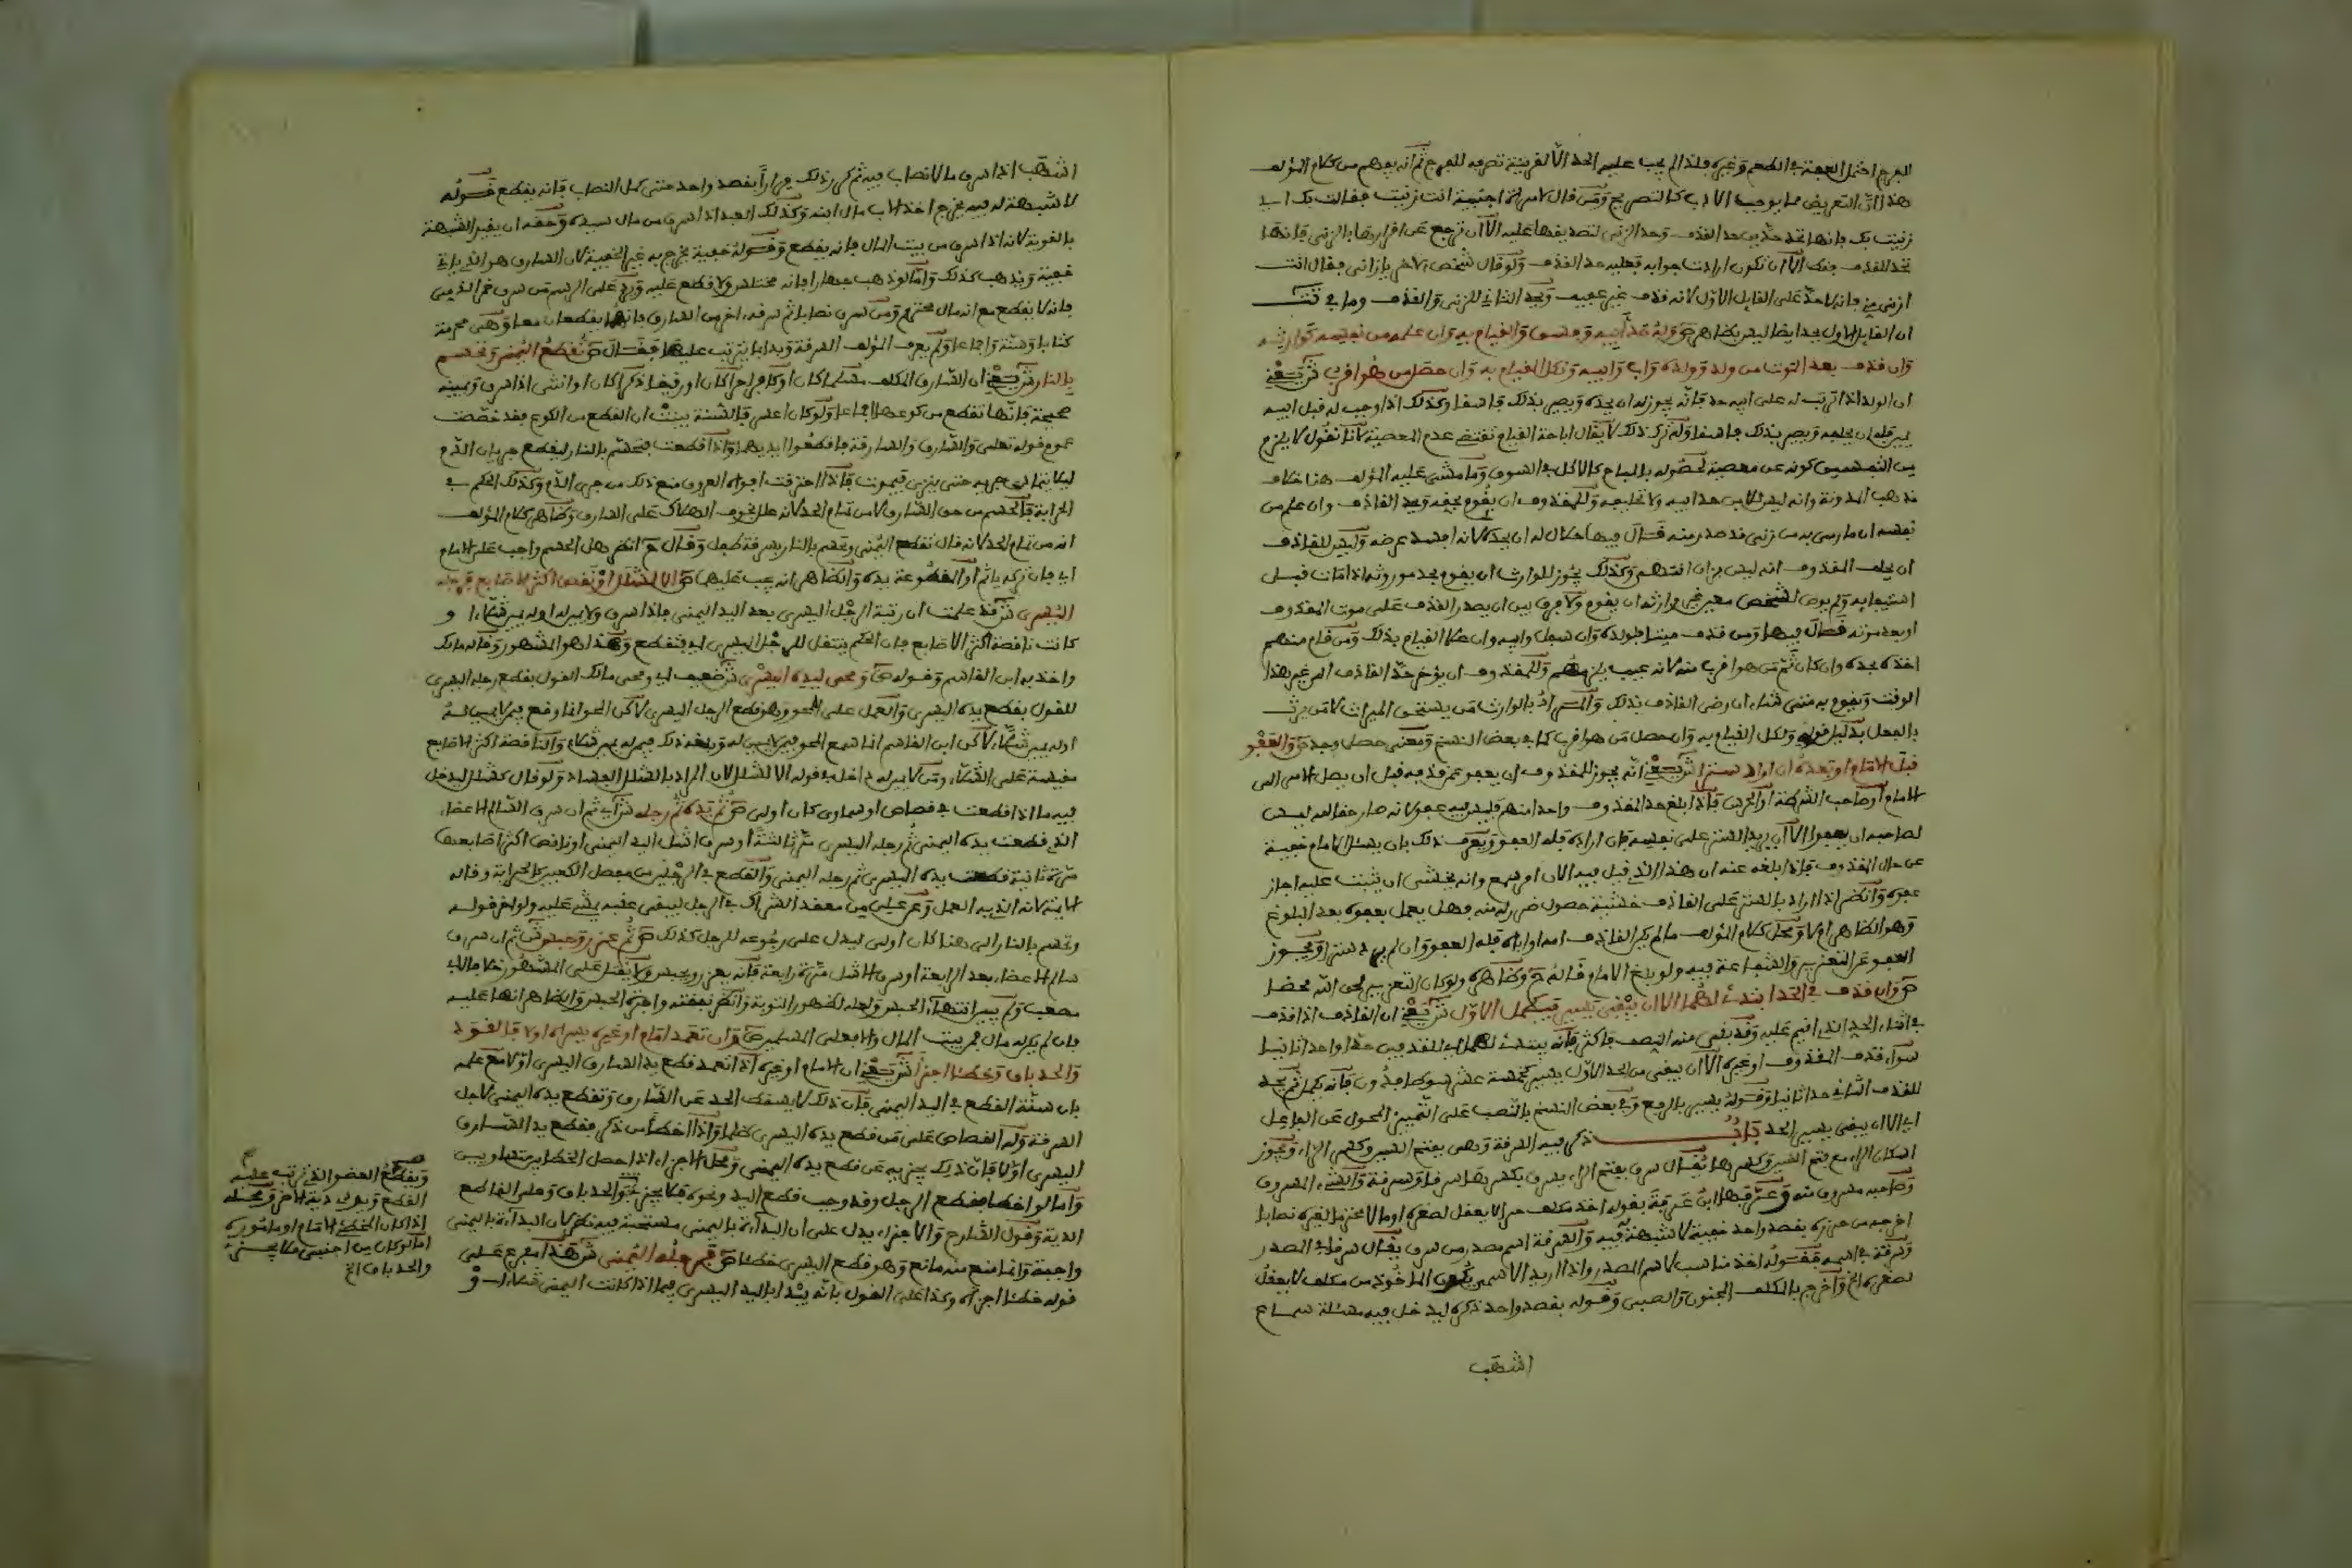 الفرج احتمل العجز في الطعم وغيره فلذا لم يجب عليه الحد الا لقرينة تصرفه للفرج ثم انه يفهم من كلام المؤلف
هذا ان التعريض مما يوجب الادب كالتصريح ومن قال لامراة اجنبية انت زنيت فقالت بك اي
زنيت بك فانها تحد حدين حد القذف وحد الزنى لتصديقها عليه الا ان ترجع عن اقرارها بالزنى فانها
تحد للقذف فقط الا ان تكون ارادت جوابه فعليه حد القذف ولو قال شخص لاخر يا زاني فقال انت
ازنى مني فانه لا حد على القايل الاول لانه قذف غير عفيف ويحد الثاني للزنى والقذف وما في تت
ان القايل الاول يحد ايضا ليس بظاهر ص وله حد ابيه وفسق والقيام به وان علمه من نفسه كوارثه
وان قذف بعد الموت من ولد وولده واب وابيه ولكل القيام به وان حصل من هو اقرب ش يعني
ان الولد اذا ترتب له على ابيه حد فانه يجوز له ان يحده ويصير بذلك فاسقا وكذلك اذا وجب له قبل ابيه
يمين فله ان يحلفه ويصير بذلك فاسقا وله ترك ذلك لا يقال اباحة القيام تقتضي عدم المعصية لانا نقول لا يلزم
من التفسيق كونه عن معصية لحصوله بالمباح كالاكل في السوق وما مشى عليه المؤلف هنا خلاف
مذهب المدونة وانه ليس للابن حد ابيه ولا تحليفه وللمقذوف ان يقوم بحقه ويحد القاذف وان علم من
نفسه ان ما رمي به من زنى قد صدر منه قال فيها حلال له ان يحده لانه افسد عرضه وليس للقاذف
ان يحلف المقذوف انه ليس بزان انتهى وكذلك يجوز للوارث ان يقوم بحد موروثه اذا مات قبل
استيفايه ولم يوص لشخص معين غير وارثه ان يقوم ولا فرق بين ان يصدر القذف على موت المقذوف
او بعد موته قال فيها ومن قذف ميتا فلولده وان سفل وابيه وان علا القيام بذلك ومن قام منهم
اخذه بحده وان كان ثم من هو اقرب منه لانه عيب يلزمهم وللمقذوف ان يؤخر حد القاذف الى غير هذا
الوقت ويقوم به متى شاء ان رضي القاذف بذلك والمراد بالوارث من يستحق الميراث لا من يرث
بالفعل بدليل قوله ولكل القيام به وان حصل من هو اقرب كما في بعض النسخ ومعنى حصل وجد ص والعفو
قبل الامام او بعده ان اراد سترا ش يعني انه يجوز للمقذوف ان يعفو عمن قذفه قبل ان يصل الامر الى
الامام او صاحب الشرطة او الحرس فاذا بلغ حد المقذوف واحدا منهم فليس فيه عفو لانه صار حقا لله ليس
لصاحبه ان يعفو الا ان يريد الستر على نفسه فان اراده فله العفو ويعرف ذلك بان يسئل الامام خفية
عن حال المقذوف فاذا بلغه عنه ان هذا الذي قيل فيه الان امر سمع وانه يخشى ان يثبت عليه اجاز
عفوه وانظر اذا اراد بالستر على القاذف خشية حصول ضرر له منه فهل يعمل بعفوه بعد البلوغ
وهو الظاهر ام لا ومحل كلام المؤلف ما لم يكن القاذف امه او اباه فله العفو وان لم يرد سترا ويجوز
العفو عن التعزير والشفاعة فيه ولو بلغ الامام قاله ح وظاهره ولو كان التعزير لحق الله محضا
ص وان قذف في الحد ابتدئ لهما الا ان يبقى يسير فيكمل الاول ش يعني ان القاذف اذا قذف
في اثناء الحد الذي اقيم عليه وقد بقي منه النصف فاكثر فانه يبتدئ لهما اي للقذفين حدا واحدا ثانيا
سواء قذف المقذوف او غيره الا ان يبقى من الحد الاول يسير كخمسة عشر سوطا فدون فانه يكمل ثم يحد
للقذف الثاني حدا ثانيا وقوله يسير بالرفع وفي بعض النسخ بالنصب على التمييز المحول عن الفاعل
اي الا ان يبقى يسير الحد باب ذكر فيه السرقة وهي بفتح السين وكسر الراء ويجوز
اسكان الراء مع فتح السين وكسرها يقال سرق بفتح الراء يسرق بكسرها سرقا وسرقة والشيء المسروق
وصاحبه مسروق منه وعرفها ابن عرفة بقوله اخذ مكلف حرا لا يعقل لصغره او مالا محترما لغيره نصابا
اخرجه من حرزه بقصد واحد خفية لا شبهة له فيه والسرقة اسم مصدر من سرق يقال سرقا في المصدر
وسرقة في اسمه فقوله اخذ مناسب لاسم المصدر واذا اريد الاسم يكون الماخوذ من مكلف لا يعقل
لصغره الخ واخرج بالمكلف المجنون والصبي وقوله بقصد واحد ذكره ليدخل فيه مسئلة سماع
اشهب
اشهب اذا سرق ما لا نصاب فيه ثم كرر ذلك مرارا بقصد واحد حتى كمل النصاب فانه يقطع قوله
لا شبهة له فيه يخرج اخذ الاب مال ابنه وكذلك العبد اذا سرق من مال سيده وحقه ان يقيد الشبهة
بالقوية لانه اذا سرق من بيت المال فانه يقطع وقوله خفية يخرج به غير الخفية لان السارق هو الذي ياتي
خفية ويذهب كذلك واما لو ذهب جهارا فانه مختلس ولا قطع عليه ويرد على الرسم من سرق خمر الذمي
فانه لا يقطع مع انه مال محترم ومن سرق نصابا ثم سرقه اخر من السارق فانهما يقطعان معا وهي محرمة
كتابا وسنة واجماعا ولم يعرف المؤلف السرقة وبدا بما يترتب عليها فقال ص تقطع اليمنى وتحسم
بالنار ش يعني ان السارق المكلف مسلما كان او كافرا حرا كان او رقيقا ذكرا كان او انثى اذا سرق ويمينه
صحيحة فانها تقطع من كوعها اجماعا ولو كان اعسر فالسنة بينت ان القطع من الكوع فقد خصصت
عموم قوله تعلى والسارق والسارقة فاقطعوا ايديهما واذا قطعت فتحسم بالنار لينقطع جريان الدم
ليلا يتمادى جريه حتى ينزف فيموت فاذا احترقت افواه العروق منع ذلك من جري الدم وكذلك الحكم في
الحرابة فالحسم من حق السارق لا من تمام الحد لانه علل بخوف الهلاك على السارق وظاهر كلام المؤلف
انه من تمام الحد لانه قال تقطع اليمنى وتحسم بالنار بسرقة طفل وقال ح انظر هل الحسم واجب على الامام
اي فان تركه ياثم او المقطوعة يده والظاهر انه يجب عليهما ص الا لشلل او نقص اكثر الاصابع فرجله
اليسرى ش قد علمت ان رتبة الرجل اليسرى بعد اليد اليمنى فاذا سرق ولا يمين له او له يمين شلاء او
كانت ناقصة اكثر الاصابع فان الحكم ينتقل للرجل اليسرى اي فتقطع وهذا هو المشهور وقاله مالك
واخذ به ابن القاسم وقوله ص ومحي ليده اليسرى ش ضعيف اي ومحى مالك القول بقطع رجله اليسرى
للقول بقطع يده اليسرى والعمل على المحو وهو قطع الرجل اليسرى لاكن المحو انما وقع فيمن لا يمين له
او له يمين شلاء لاكن ابن القاسم انما سمع المحو فيمن لا يمين له وبلغه ذلك فيمن له يمين شلاء والناقصة اكثر الاصابع
مقيسة على الشلاء ومن لا يمين له داخل في قوله الا لشلل لان المراد بالشلل الفساد ولو قال كشلل ليدخل
فيه ما اذا قطعت في قصاص او سماوي كان اولى ص ثم يده ثم رجله ش اي ثم ان سرق السالم الاعضاء
الذي قطعت يده اليمنى ثم رجله اليسرى مرة ثالثة او سرق اشل اليد اليمنى او ناقص اكثر اصابعها
مرة ثانية قطعت يده اليسرى ثم رجله اليمنى والقطع في الرجلين من مفصل الكعبين كالحرابة وقاله
الايمة لانه الذي به العمل وعن علي من معقد الشراك في الرجل ليبقى عقبه يمشي عليه ولو اخر قوله
وتحسم بالنار الى هنا كان اولى ليدل على رجوعه للرجل كذلك ص ثم عزر وحبس ش ثم ان سرق
سالم الاعضاء بعد الرابعة او سرق الاشل مرة رابعة فانه يعزر ويحبس ولا يقتل على المشهور خلافا لابي
مصعب ولم يبين انتهاء الحبس ولعله لظهور التوبة وانظر نفقته واجرة الحبس والظاهر انها عليه
فان لم يكن له مال فمن بيت المال والا فعلى المسلمين ص وان تعمد امام او غيره يسراه اولا فالقود
والحد باق وخطئا اجزأ ش يعني ان الامام او غيره اذا تعمد قطع يد السارق اليسرى اولا مع علمه
بان سنة القطع في اليد اليمنى فان ذلك لا يسقط الحد عن السارق وتقطع يده اليمنى لاجل
السرقة وله القصاص على من قطع يده اليسرى ظلما واذا اخطأ من ذكر فقطع يد السارق
اليسرى اولا فان ذلك يجزيه عن قطع يده اليمنى ومحل الاجزاء اذا حصل الخطا بين متساويين
واما لو اخطا فقطع الرجل وقد وجب قطع اليد ونحوه فلا يجزي والحد باق وعلى القاطع
الدية وقول الشارح والاجزاء يدل على ان البداءة باليمنى مستحبة فيه نظر لان البداءة باليمنى
واجبة وانما منع منه مانع وهو قطع اليسرى خطئا ص فرجله اليمنى ش هذا مفرع على
قوله خطئا اجزأ وكذا على القول بانه يبدا باليد اليسرى فيما اذا كانت اليمنى شلاء او
ويقطع العضو الذي ترتب عليه
القطع ويودي دية الاخر ومحله
اذا كان المخطئ الامام او ماموره
اما لو كان من اجنبي فلا يجزي
والحد باق الخ